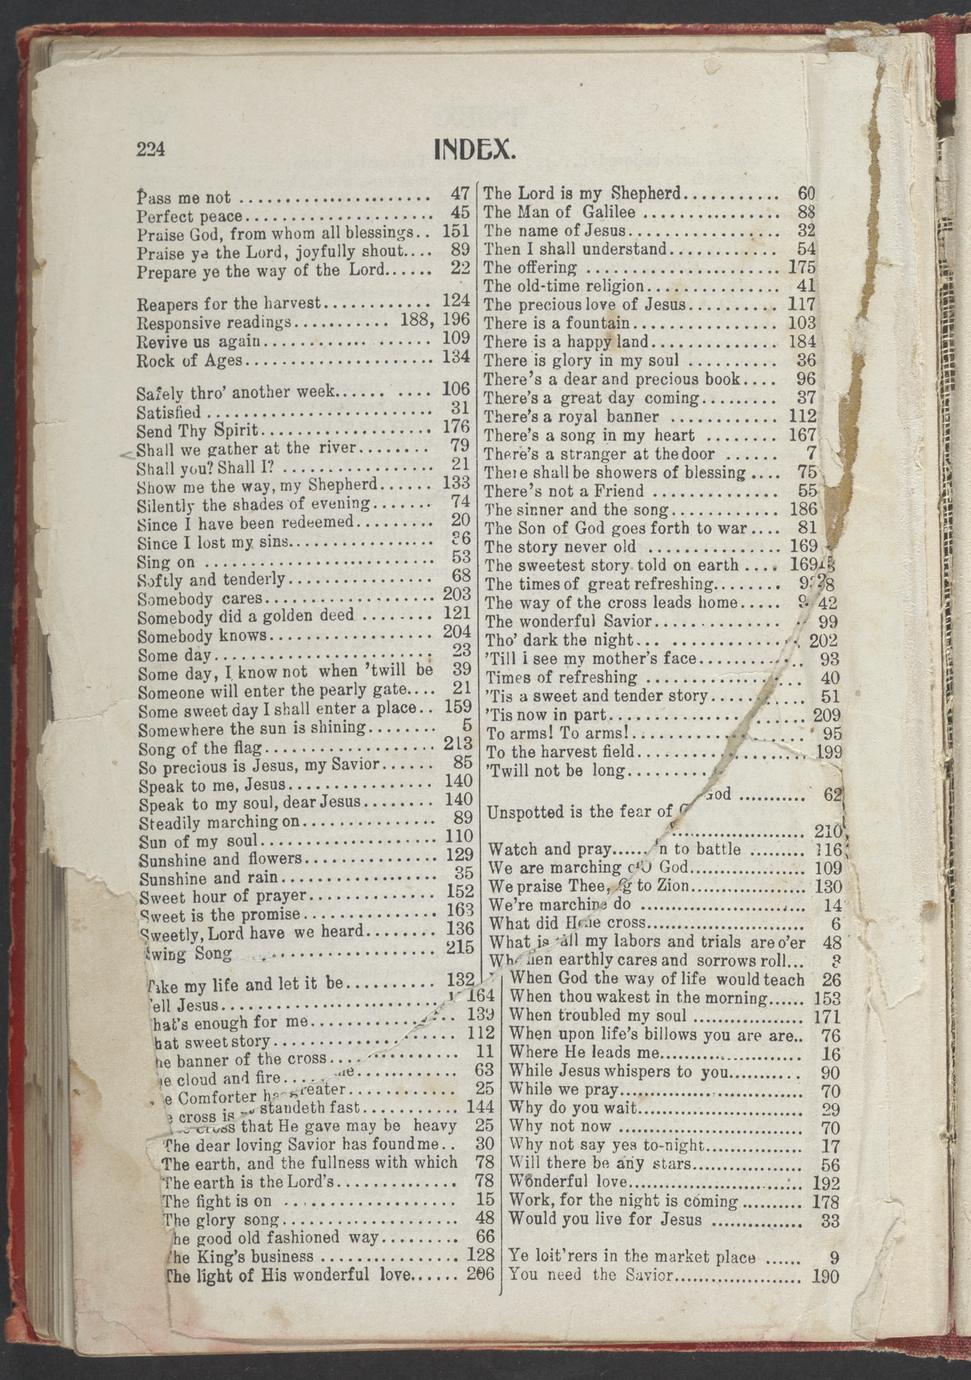 224
INDEX.
Pass me not ...................... 47
Perfect peace...................... 45
Praise God, from whom all blessings.. 151
Praise ye the Lord, joyfully shout.... 89
Prepare ye the way of the Lord...... 22
Reapers for the harvest............ 124
Responsive readings........... 188, 196
Revive us again............ ...... 109
Rock of Ages..................... 134
Safely thro' another week...... .... 106
Satisfied ......................... 31
Send Thy Spirit................... 176
Shall we gather at the river........ 79
Shall you? Shall I? ................. 21
Show me the way, my Shepherd...... 133
Silently the shades of evening....... 74
Since I have been redeemed......... 20
Since I lost my sins................ 36
Sing on .......................... 53
Softly and tenderly................ 68
Somebody cares................... 203
Somebody did a golden deed ........ 121
Somebody knows.................. 204
Some day........................ 23
Some day, I know not when 'twill be 39
Someone will enter the pearly gate.... 21
Some sweet day I shall enter a place.. 159
Somewhere the sun is shining........ 5
Song of the flag................... 213
So precious is Jesus, my Savior...... 85
Speak to me, Jesus................ 140
Speak to my soul, dear Jesus........ 140
Steadily marching on............... 89
Sun of my soul.................... 110
Sunshine and flowers............... 129
Sunshine and rain................. 35
Sweet hour of prayer.............. 152
Sweet is the promise............... 163
Sweetly, Lord have we heard........ 136
Swing Song .................... 215
Take my life and let it be.......... 132
ell Jesus........................ 164
hat's enough for me............... 139
hat sweet story................... 112
he banner of the cross............. 11
e cloud and fire.... 63
e Comforter greater............ 25
cross is standeth fast........... 144
cross that He gave may be heavy 25
The dear loving Savior has found me.. 30
The earth, and the fullness with which 78
The earth is the Lord's............. 78
The fight is on ................... 15
The glory song.................... 48
he good old fashioned way......... 66
The King's business ............... 128
The light of His wonderful love...... 206
The Lord is my Shepherd........... 60
The Man of Galilee ................ 88
The name of Jesus................. 32
Then I shall understand............ 54
The offering ...................... 175
The old-time religion............... 41
The precious love of Jesus.......... 117
There is a fountain................. 103
There is a happy land.............. 184
There is glory in my soul .......... 36
There's a dear and precious book.... 96
There's a great day coming......... 37
There's a royal banner ............ 112
There's a song in my heart ........ 167
There's a stranger at the door ...... 7
There shall be showers of blessing .... 75
There's not a Friend .............. 55
The sinner and the song............ 186
The Son of God goes forth to war.... 81
The story never old ............... 169
The sweetest story told on earth .... 169
The times of great refreshing........ 9
The way of the cross leads home..... 42
The wonderful Savior.............. 99
Tho' dark the night... ............. 202
'Till i see my mother's face............ 93
Times of refreshing .................. 40
'Tis a sweet and tender story.......... 51
'Tis now in part...................... 209
To arms! To arms!.................... 95
To the harvest field................... 199
'Twill not be long.........
God ........... 62
Unspotted is the fear of
..................... 210
Watch and pray...... 'n to battle ......... 116
We are marching O God............... 109
We praise Thee, to Zion............... 130
We're marching do ..................... 14
What did He cross.................... 6
What is all my labors and trials are o'er 48
Wh hen earthly cares and sorrows roll... 3
When God the way of life would teach 26
When thou wakest in the morning...... 153
When troubled my soul ................ 171
When upon life's billows you are are.. 76
Where He leads me.................... 16
While Jesus whispers to you........... 90
While we pray........................ 70
Why do you wait...................... 29
Why not now ......................... 70
Why not say yes to-night.............. 17
Will there be any stars................ 56
Wonderful love....................... 192
Work, for the night is coming .......... 178
Would you live for Jesus .............. 33
Ye loit'rers in the market place ...... 9
You need the Savior.................. 190